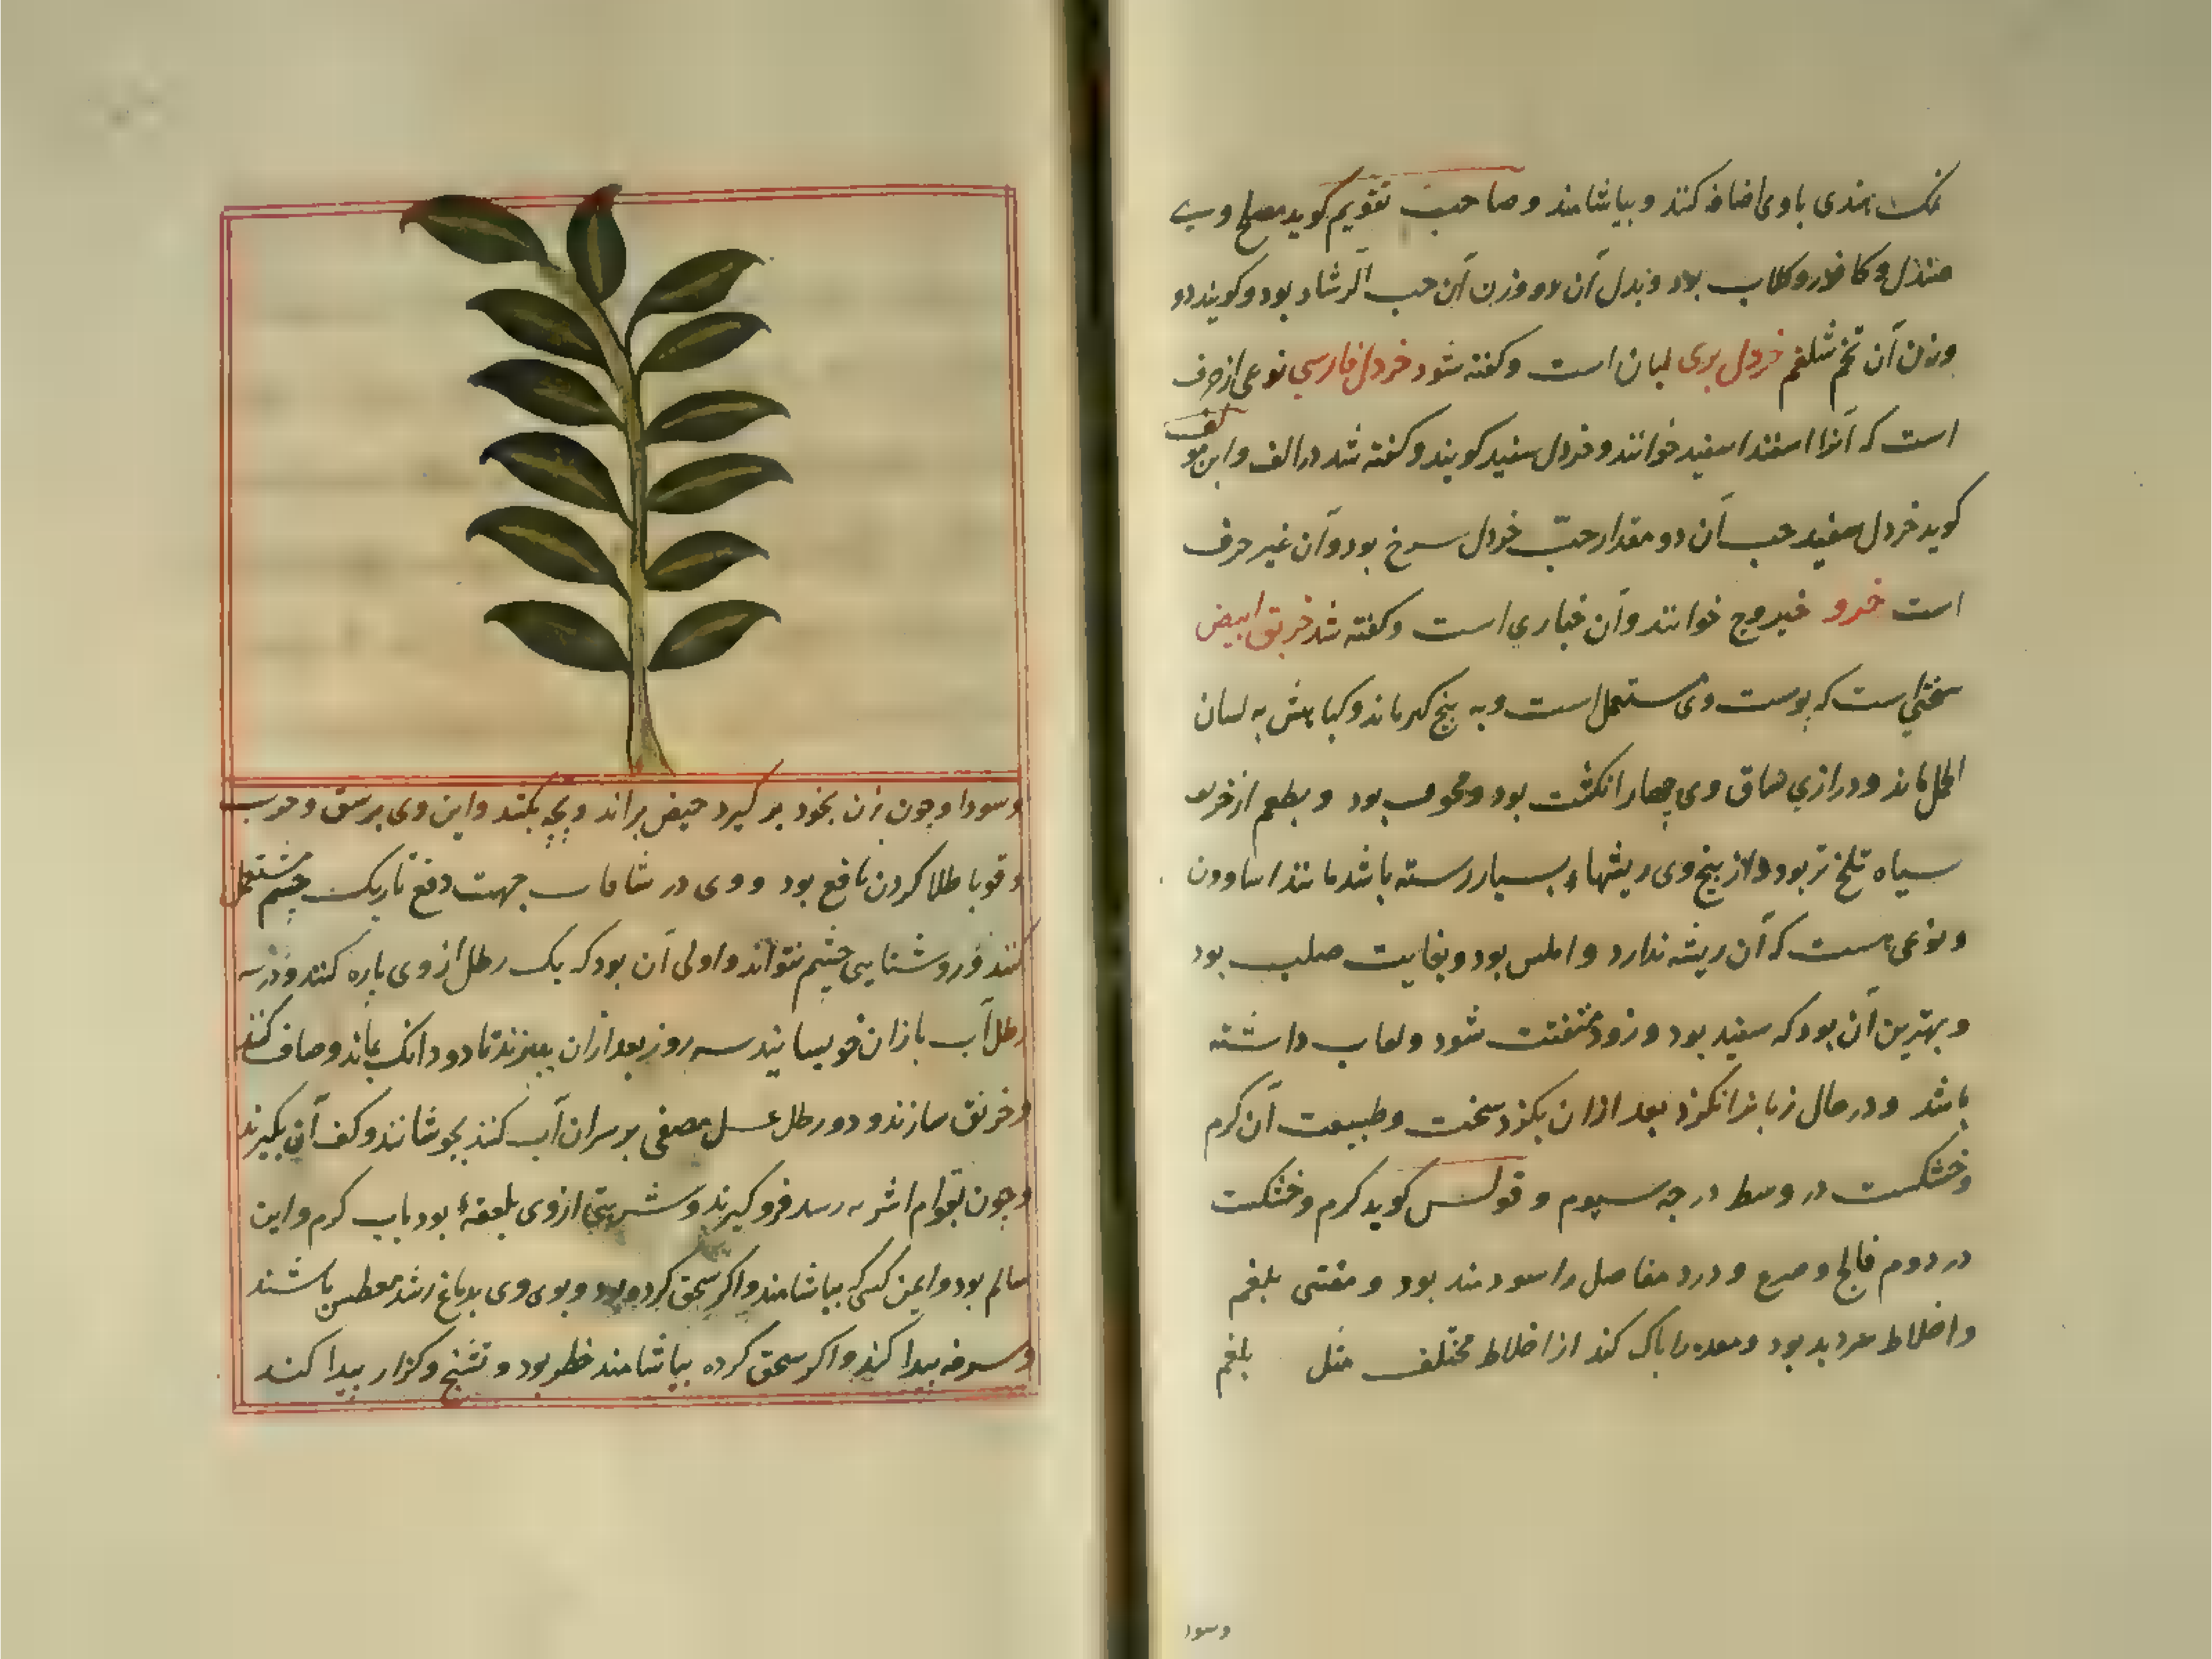 نمک هندی باوی اضافه کنند و بیاشامند و صاحب تقویم کوید مصلح وی
صندل و کافور و کلاب بود و بدل آن دو وزن آن حب الرشاد بود و کویند دو
وزن آن تخم شلغم خردل بری لبسان است و کفته شود خردل فارسی نوعی از حرف
است که آنرا اسفند اسفید خوانند و خردل سفید کویند و کفته شد در الف و ابن مؤلف
کوید خردل سفید حب آن دو مقدار حبّ خردل سرخ بود و آن غیر حرف
است خرو خیروج خوانند و آن خیاری است و کفته شد خربق ابیض
سختی است که پوست وی مستعمل است و به بیخ کبر ماند و کیاهش به لسان
الحمل ماند و درازی ساق وی چهار انکشت بود و مجوف بود و بطعم از خربق
سیاه تلخ تر بود و از بیخ وی ریشهاء بسیار رسته باشد مانند اسارون
و نوعی هست که آن ریشه ندارد و املس بود و بغایت صلب بود
و بهترین آن بود که سفید بود و زود متفتت شود و لعاب داشته
باشد و در حال زبانرا نکزد بعد ازان بکزد سخت و طبیعت آن کرم
و خشکست در وسط درجه سیوم و قولس کوید کرم و خشکست
در دوم فالج و صرع و درد مفاصل را سودمند بود و مقئی بلغم
و اخلاط بود و معده را پاک کند از اخلاط مختلف مثل بلغم
وسود
و سودا و چون زن بخود بر کیرد حیض براند و بچه بکشد و این وی بر بهق و جرب
و قوبا طلا کردن نافع بود و وی در شافات جهت دفع تاریک چشم مستعمل
کنند و روشنایی چشم بتواند و اولی آن بود که یک رطل از وی پاره کنند و در سه
رطل آب باران خویسانند سه روز بعد ازان بپزند تا دو دانک بماند و صاف کنند
و خربق سازند و دو رطل عسل مصفی بر سر آن آب کنند بجوشانند و کف آن بکیرند
و چون بقوام اشربه رسد فرو کیرند و شربتی از وی بلعقهٔ بود باب کرم و این
سالم بود و ایمن کسی که بیاشامند و اکر سحق کرده بود و بوی وی بدماغ رسد معطس باشند
و سرفه پیدا کند و اکر سحق کرده بیاشامند خطر بود و تشنج و کزاز پیدا کند